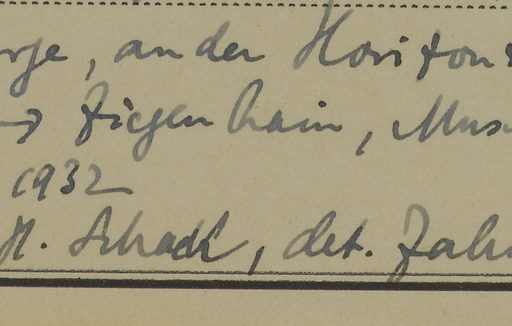 , an der Horizon
→ Ziegenhain, Mus
1932
H. Schack, det. Zahn